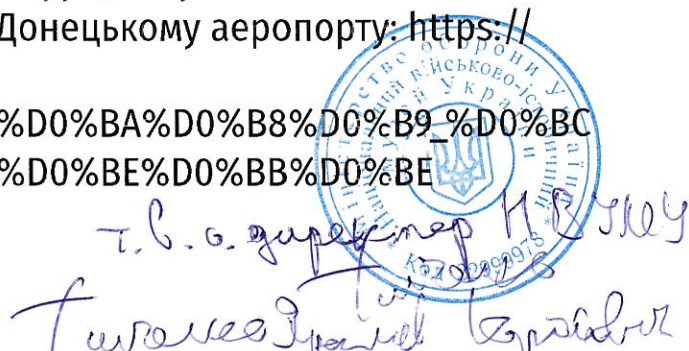 Донецькому аеропорту: https://
%D0%BA%D0%B8%D0%B9_%D0%BC
%D0%BE%D0%BB%D0%BE
Міністерство оборони України
Національний військово-історичний
музей України
Код 02999978
т.в.о. директор НВІМУ